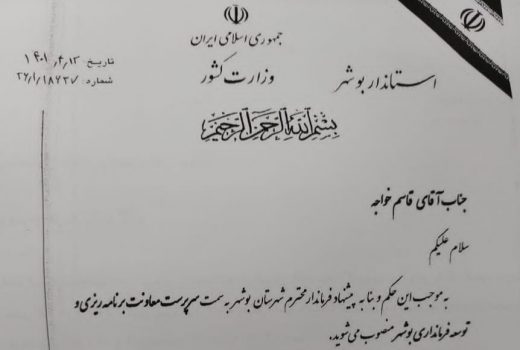 جمهوری اسلامی ایران
وزارت کشور
استاندار بوشهر
تاریخ ۱۴۰۱٫۴٫۱۲
شماره ۲۶/۱/۱۸۷۳۷
بسم الله الرحمن الرحیم
جناب آقای قاسم خواجه
سلام علیکم
به موجب این حکم و بنا به پیشنهاد فرماندار محترم شهرستان بوشهر به سمت سرپرست معاونت برنامه ریزی و
توسعه فرمانداری بوشهر منصوب می شوید.